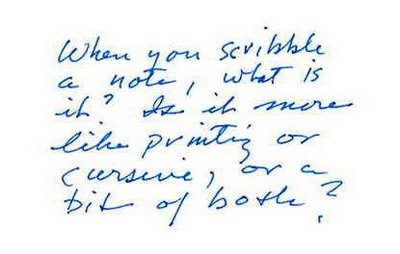 When you scribble
a note, what is
it? Is it more
like printing or
cursive, or a
bit of both?